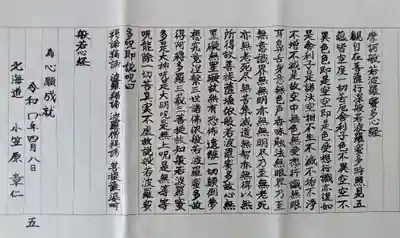 摩訶般若波羅蜜多心経
観自在菩薩行深般若波羅蜜多時照見五
蘊皆空度一切苦厄舎利子色不異空空不
異色色即是空空即是色受想行識亦復如
是舎利子是諸法空相不生不滅不垢不浄
不増不減是故空中無色無受想行識無眼
耳鼻舌身意無色声香味触法無眼界乃至
無意識界無無明亦無無明尽乃至無老死
亦無老死尽無苦集滅道無智亦無得以無
所得故菩提薩埵依般若波羅蜜多故心無
罣礙無罣礙故無有恐怖遠離一切顛倒夢
想究竟涅槃三世諸仏依般若波羅蜜多故
得阿耨多羅三藐三菩提故知般若波羅蜜
多是大神呪是大明呪是無上呪是無等等
呪能除一切苦真実不虚故説般若波羅蜜
多呪即説呪曰
羯諦羯諦 波羅羯諦 波羅僧羯諦 菩提薩婆訶
般若心経
為心願成就
令和四年四月八日
北海道 小笠原 章仁
五